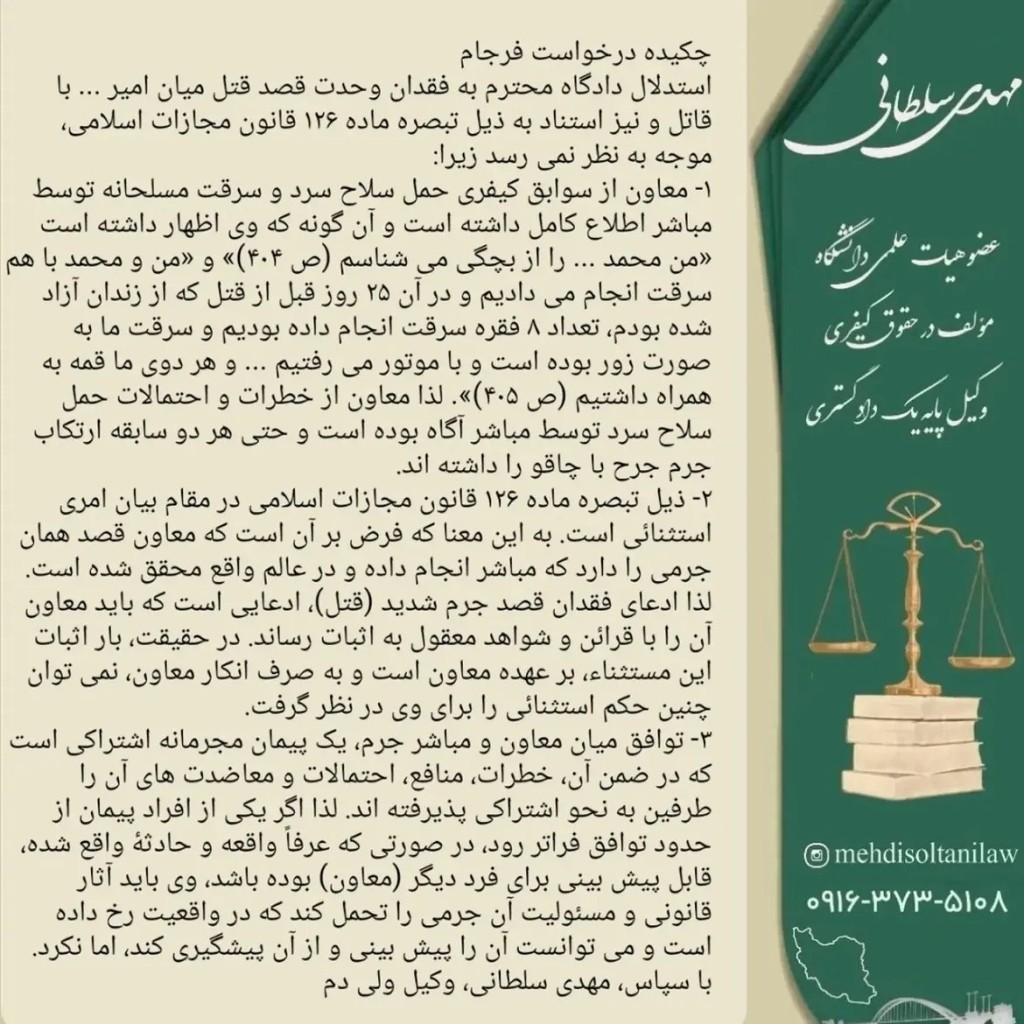 چکیده درخواست فرجام
استدلال دادگاه محترم به فقدان وحدت قصد قتل میان امیر ... با
قاتل و نیز استناد به ذیل تبصره ماده ۱۲۶ قانون مجازات اسلامی،
موجه به نظر نمی رسد زیرا:
۱- معاون از سوابق کیفری حمل سلاح سرد و سرقت مسلحانه توسط
مباشر اطلاع کامل داشته است و آن گونه که وی اظهار داشته است
«من محمد ... را از بچگی می شناسم (ص ۴۰۴)» و «من و محمد با هم
سرقت انجام می دادیم و در آن ۲۵ روز قبل از قتل که از زندان آزاد
شده بودم، تعداد ۸ فقره سرقت انجام داده بودیم و سرقت ما به
صورت زور بوده است و با موتور می رفتیم ... و هر دوی ما قمه به
همراه داشتیم (ص ۴۰۵)». لذا معاون از خطرات و احتمالات حمل
سلاح سرد توسط مباشر آگاه بوده است و حتی هر دو سابقه ارتکاب
جرم جرح با چاقو را داشته اند.
۲- ذیل تبصره ماده ۱۲۶ قانون مجازات اسلامی در مقام بیان امری
استثنائی است. به این معنا که فرض بر آن است که معاون قصد همان
جرمی را دارد که مباشر انجام داده و در عالم واقع محقق شده است.
لذا ادعای فقدان قصد جرم شدید (قتل)، ادعایی است که باید معاون
آن را با قرائن و شواهد معقول به اثبات رساند. در حقیقت، بار اثبات
این مستثناء، بر عهده معاون است و به صرف انکار معاون، نمی توان
چنین حکم استثنائی را برای وی در نظر گرفت.
۳- توافق میان معاون و مباشر جرم، یک پیمان مجرمانه اشتراکی است
که در ضمن آن، خطرات، منافع، احتمالات و معاضدت های آن را
طرفین به نحو اشتراکی پذیرفته اند. لذا اگر یکی از افراد پیمان از
حدود توافق فراتر رود، در صورتی که عرفاً واقعه و حادثهٔ واقع شده،
قابل پیش بینی برای فرد دیگر (معاون) بوده باشد، وی باید آثار
قانونی و مسئولیت آن جرمی را تحمل کند که در واقعیت رخ داده
است و می توانست آن را پیش بینی و از آن پیشگیری کند، اما نکرد.
با سپاس، مهدی سلطانی، وکیل ولی دم
مهدی سلطانی
عضو هیات علمی دانشگاه
مؤلف در حقوق کیفری
وکیل پایه یک دادگستری
mehdisoltanilaw
۰۹۱۶-۳۷۳-۵۱۰۸